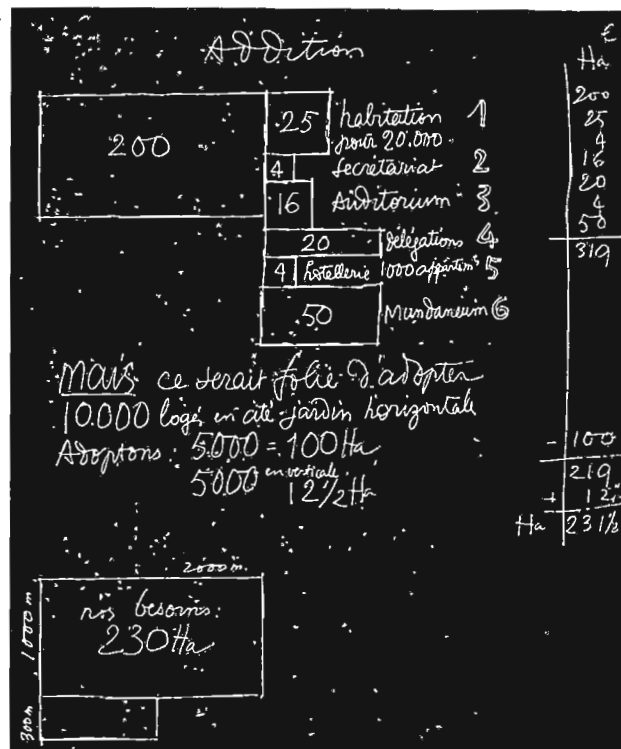 Addition
€
Ha
200
25
4
16
20
4
50
319
200
25 habitation 1
pour 20.000
4 Secrétariat 2
16 Auditorium 3
20 délégations 4
4 hostellerie 1000 appartmts 5
50 Mundaneum 6
MAIS ce serait folie d'adopter
10.000 logés en cité-jardin horizontale
Adoptons: 5000 = 100 Ha
5000 en verticale 12 1/2 Ha
- 100
219
+ 12
Ha 231 1/2
2000 m.
1000 m
nos besoins:
230 Ha
300 m